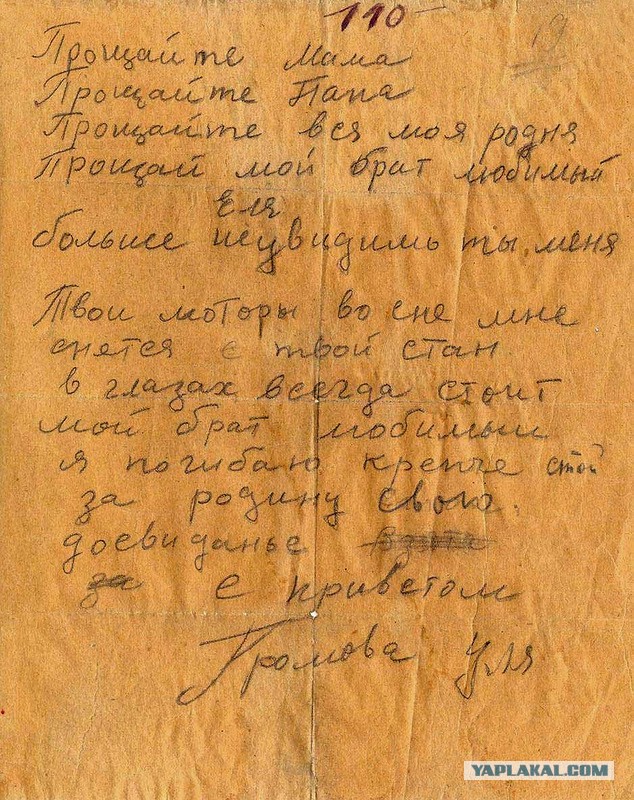 110
19
Прощайте Мама
Прощайте Папа
Прощайте вся моя родня
Прощай мой брат любимый
Еля
больше неувидишь ты меня
Твои моторы во сне мне
снятся с твой стан
в глазах всегда стоит
мой брат любимыи
я погибаю крепче стой
за родину свою.
досвиданье
за с приветом
Громова Уля
YAPLAKAL.COM